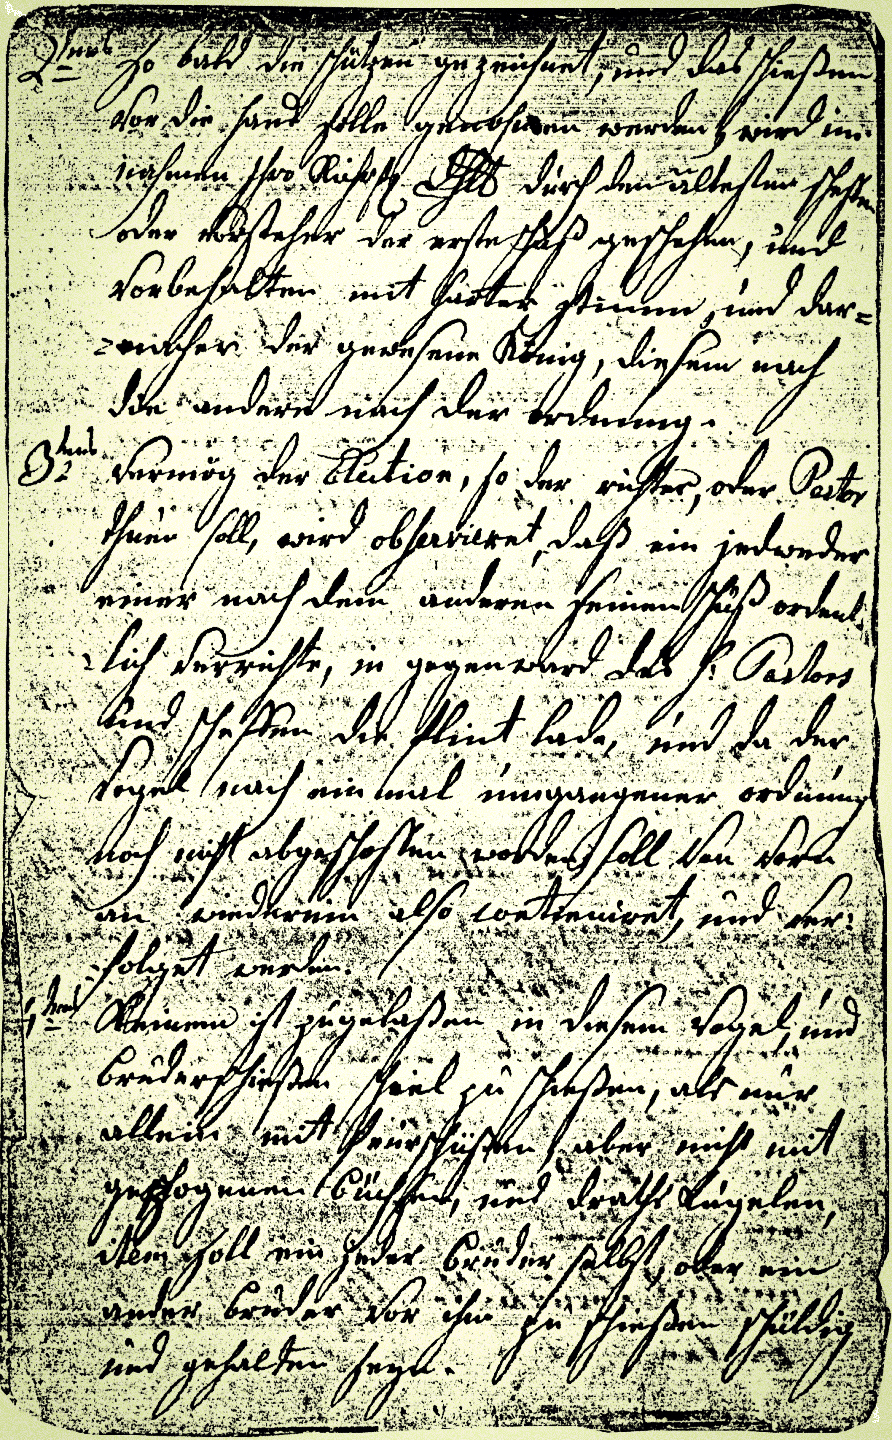 2tens So bald die schützen gezeichnet, und das schießen
vor die hand solle genohmen werden, wird im
nahmen Ihro durch den ältesten scheffen
oder vorsteher der erste schuß geschehen, und
vorbehalten mit harter stimm, und dar=
=nacher der gewesene König, diesem nach
die andere nach der ordnung.
3tens vermög der Election, so der richter, oder Pastor
thuen soll, wird observieret, daß ein jedweder
einer nach dem anderen seinen schuß ordent
=lich verrichte, in gegenward des H: Pastors
und scheffen die flint lade, und da der
vogel nach ein mal umgangener ordnung
noch nicht abgeschossen worden, soll von vorn
an wiederum also continuiret, und ver:
folget werden.
4tens Keinem ist zugelaßen in diesem vogel, und
bruderschießen spiel zu schießen, als nur
allein mit aber nicht mit
gezogenen büchsen, und draths kugelen,
item soll ein jeder bruder selbst, oder ein
ander bruder vor ihn zu schießen schuldig
und gehalten seyn.